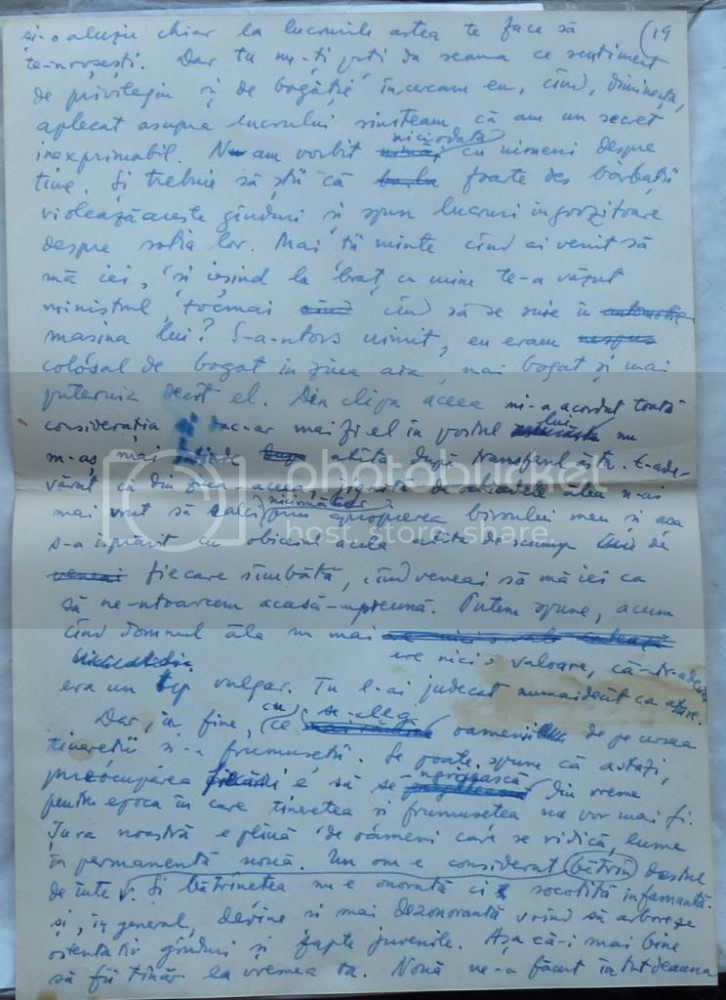 (19
și-o aluzie chiar la lucrurile astea te face să
te-noroșești. Dar tu nu-ți poți da seama ce sentiment
de privilegiu și de bogăție încercam eu, cînd, dimineața,
aplecat asupra lucrului simțeam că am un secret
inexprimabil. N-am vorbit niciodată cu nimeni despre
tine. Și trebuie să știi că foarte des bărbații
violează aceste gînduri și spun lucruri îngrozitoare
despre soția lor. Mai ții minte cînd ai venit să
mă iei, și ieșind la braț cu mine te-a văzut
ministrul, tocmai cînd să se suie în
mașina lui? S-a-ntors uimit, eu eram
colosal de bogat în ziua aia, mai bogat și mai
puternic decît el. Din clipa aceea mi-a acordat toată
considerația și dac-ar mai fi el în postul lui nu
m-aș mai după transferul ăsta. E-ade-
vărat că din ziua aceea, n-ai
mai vrut să calci niciodată prin apropierea biroului meu și așa
s-a isprăvit cu obiceiul acela atît de scump de
fiecare sîmbătă, cînd veneai să mă iei ca
să ne-ntoarcem acasă-mpreună. Putem spune, acum
cînd domnul ăla nu mai
are nici o valoare, că-ntr-adevăr
era un tip vulgar. Tu l-ai judecat numaidecît ca atare.
Dar, în fine, cu ce se-aleg oamenii de pe urma
tinereții și-a frumuseții. Se poate spune că astăzi,
preocuparea e să se îngrozească din vreme
pentru epoca în care tinerețea și frumusețea nu vor mai fi.
Țara noastră e plină de oameni care se ridică, lume
în permanență nouă. Un om e considerat bătrîn destul
de iute. Și bătrînețea nu e onorată ci socotită infamantă.
și, în general, devine și mai dezonorantă vrînd să arboreze
ostentativ gînduri și fapte juvenile. Așa că-i mai bine
să fii tînăr la vremea ta. Nouă ne-a făcut întotdeauna
photobucket
host. store. share.